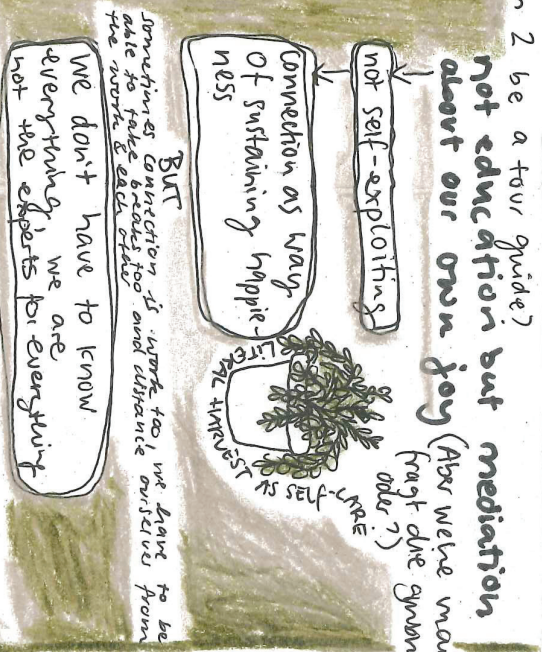 2 be a tour guide?
not education but mediation
about our own joy (Aber wehe
fragt die
oder?)
not self-exploiting
connection as way
of sustaining happie-
ness
LITERAL HARVEST AS SELF-CARE
BUT
sometimes connection is work too, we have to be
able to take breaks too and distance ourselves from
the work & each other
We don't have to know
everything, we are
not the experts for everything